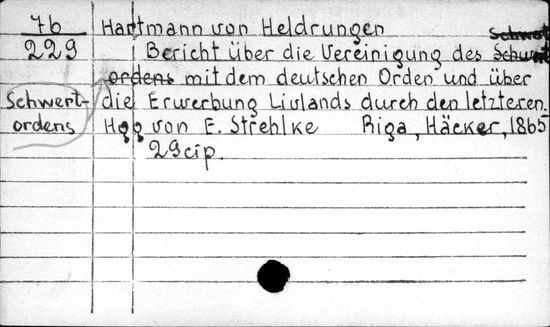 7b Hartmann von Heldrungen
229 Bericht über die Vereinigung des Schwert
ordens mit dem deutschen Orden und über
Schwert- die Erwerbung Livlands durch den letzteren.
ordens Hgg von E. Strehlke Riga, Häcker, 1865
29 cip.